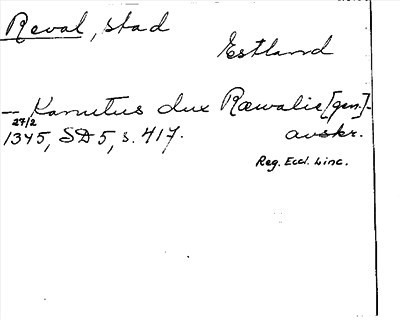 Reval, stad
Estland
— Kanutus dux Ræwalie [gen.] -
27/2
1345, SD 5, s. 417. avskr.
Reg. Eccl. Linc.